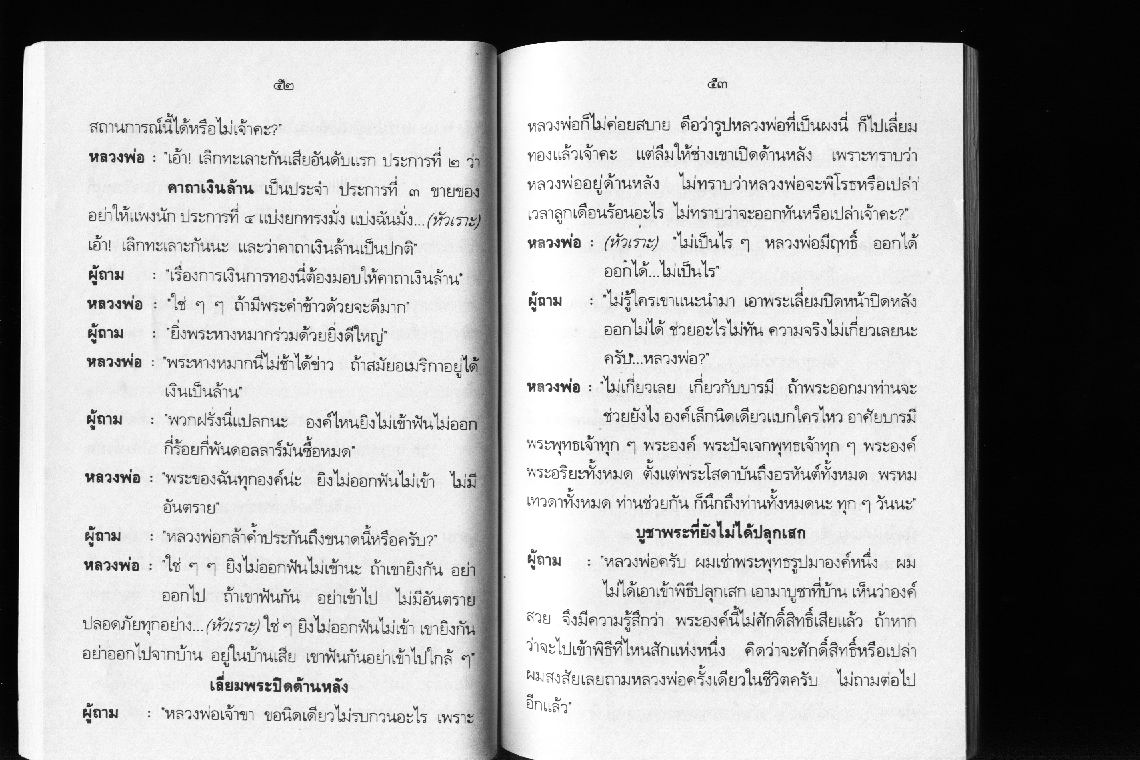 ๕๒
สถานการณ์นี้ได้หรือไม่เจ้าคะ?"
หลวงพ่อ : "เอ้า! เลิกทะเลาะกันเสียอันดับแรก ประการที่ ๒ ว่า
คาถาเงินล้าน เป็นประจำ ประการที่ ๓ ขายของ
อย่าให้แพงนัก ประการที่ ๔ แบ่งยกทรงมั่ง แบ่งฉันมั่ง...(หัวเราะ)
เอ้า! เลิกทะเลาะกันนะ และว่าคาถาเงินล้านเป็นปกติ"
ผู้ถาม : "เรื่องการเงินการทองนี่ต้องมอบให้คาถาเงินล้าน"
หลวงพ่อ : "ใช่ ๆ ๆ ถ้ามีพระคำข้าวด้วยจะดีมาก"
ผู้ถาม : "ยิ่งพระหางหมากร่วมด้วยยิ่งดีใหญ่"
หลวงพ่อ : "พระหางหมากนี่ไม่ช้าได้ข่าว ถ้าสมัยอเมริกาอยู่ได้
เงินเป็นล้าน"
ผู้ถาม : "พวกฝรั่งนี่แปลกนะ องค์ไหนยิงไม่เข้าฟันไม่ออก
กี่ร้อยกี่พันดอลลาร์มันซื้อหมด"
หลวงพ่อ : "พระของฉันทุกองค์น่ะ ยิงไม่ออกฟันไม่เข้า ไม่มี
อันตราย"
ผู้ถาม : "หลวงพ่อกล้าค้ำประกันถึงขนาดนี้หรือครับ?"
หลวงพ่อ : "ใช่ ๆ ๆ ยิงไม่ออกฟันไม่เข้านะ ถ้าเขายิงกัน อย่า
ออกไป ถ้าเขาฟันกัน อย่าเข้าไป ไม่มีอันตราย
ปลอดภัยทุกอย่าง...(หัวเราะ) ใช่ ๆ ยิงไม่ออกฟันไม่เข้า เขายิงกัน
อย่าออกไปจากบ้าน อยู่ในบ้านเสีย เขาฟันกันอย่าเข้าไปใกล้ ๆ"
เลี่ยมพระปิดด้านหลัง
ผู้ถาม : "หลวงพ่อเจ้าขา ขอนิดเดียวไม่รบกวนอะไร เพราะ
๕๓
หลวงพ่อก็ไม่ค่อยสบาย คือว่ารูปหลวงพ่อที่เป็นผงนี่ ก็ไปเลี่ยม
ทองแล้วเจ้าคะ แต่ลืมให้ช่างเขาเปิดด้านหลัง เพราะทราบว่า
หลวงพ่ออยู่ด้านหลัง ไม่ทราบว่าหลวงพ่อจะพิโรธหรือเปล่า
เวลาลูกเดือนร้อนอะไร ไม่ทราบว่าจะออกทันหรือเปล่าเจ้าคะ?"
หลวงพ่อ : (หัวเราะ) "ไม่เป็นไร ๆ หลวงพ่อมีฤทธิ์ ออกได้
ออกได้...ไม่เป็นไร"
ผู้ถาม : "ไม่รู้ใครเขาแนะนำมา เอาพระเลี่ยมปิดหน้าปิดหลัง
ออกไม่ได้ ช่วยอะไรไม่ทัน ความจริงไม่เกี่ยวเลยนะ
ครับ...หลวงพ่อ?"
หลวงพ่อ : "ไม่เกี่ยวเลย เกี่ยวกับบารมี ถ้าพระออกมาท่านจะ
ช่วยยังไง องค์เล็กนิดเดียวแบกใครไหว อาศัยบารมี
พระพุทธเจ้าทุก ๆ พระองค์ พระปัจเจกพุทธเจ้าทุก ๆ พระองค์
พระอริยะทั้งหมด ตั้งแต่พระโสดาบันถึงอรหันต์ทั้งหมด พรหม
เทวดาทั้งหมด ท่านช่วยกัน ก็นึกถึงท่านทั้งหมดนะ ทุก ๆ วันนะ"
บูชาพระที่ยังไม่ได้ปลุกเสก
ผู้ถาม : "หลวงพ่อครับ ผมเช่าพระพุทธรูปมาองค์หนึ่ง ผม
ไม่ได้เอาเข้าพิธีปลุกเสก เอามาบูชาที่บ้าน เห็นว่าองค์
สวย จึงมีความรู้สึกว่า พระองค์นี้ไม่ศักดิ์สิทธิ์เสียแล้ว ถ้าหาก
ว่าจะไปเข้าพิธีที่ไหนสักแห่งหนึ่ง คิดว่าจะศักดิ์สิทธิ์หรือเปล่า
ผมสงสัยเลยถามหลวงพ่อครั้งเดียวในชีวิตครับ ไม่ถามต่อไป
อีกแล้ว"